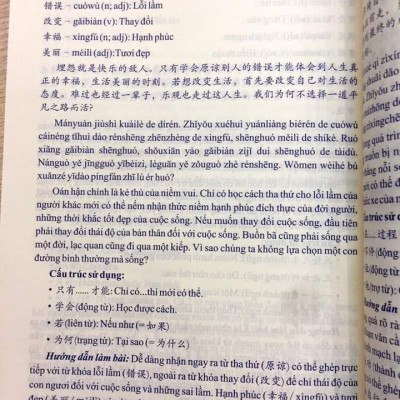 错误 – cuòwù (n; adj): Lỗi lầm
改变 – gǎibiàn (v): Thay đổi
幸福 – xìngfú (n; adj): Hạnh phúc
美丽 – měilì (adj): Tươi đẹp
理怨就是快乐的敌人。只有学会原谅别人的错误才能体会到人生真
正的幸福，生活美丽的时刻。若想改变生活，首先要改变自己对生活的
态度。难过也经过一辈子，乐观也走过这人生。我们为何不选择一道平
凡之路而活？
Mányuàn jiùshì kuàilè de dírén. Zhǐyǒu xuéhuì yuánliàng biérén de cuòwù
cáinéng tǐhuì dào rénshēng zhēnzhèng de xìngfú, shēnghuó měilì de shíkè. Ruò
xiǎng gǎibiàn shēnghuó, shǒuxiān yào gǎibiàn zìjǐ duì shēnghuó de tàidù.
Nánguò yě jīngguò yībèizi, lèguān yě zǒuguò zhè rénshēng. Wǒmen wèihé bù
xuǎnzé yīdào píngfán zhī lù ér huó?
Oán hận chính là kẻ thù của niềm vui. Chỉ có học cách tha thứ cho lỗi lầm của
người khác mới có thể nếm nhận thức niềm hạnh phúc đích thực của đời người,
những thời khắc tốt đẹp của cuộc sống. Nếu muốn thay đổi cuộc sống, đầu tiên
phải thay đổi thái độ của bản thân đối với cuộc sống. Buồn bã cũng phải sống qua
một đời, lạc quan cũng đi qua một kiếp. Vì sao chúng ta không lựa chọn một con
đường bình thường mà sống?
Cấu trúc sử dụng:
• 只有...... 才能: Chỉ có...thì mới có thể.
• 学会(động từ): Học được cách.
• 若(liên từ): Nếu như (= 如果)
• 为何(trạng từ): Tại sao (= 为什么)
Hướng dẫn làm bài: Dễ dàng nhận ngay ra từ tha thứ (原谅) có thể ghép
tiếp với từ khóa lỗi lầm (错误), ngoài ra từ khóa thay đổi (改变) để chỉ thái độ của
con người đối với cuộc sống và những sai lầm. Hạnh phúc (幸福 / xìngfú) và tươi